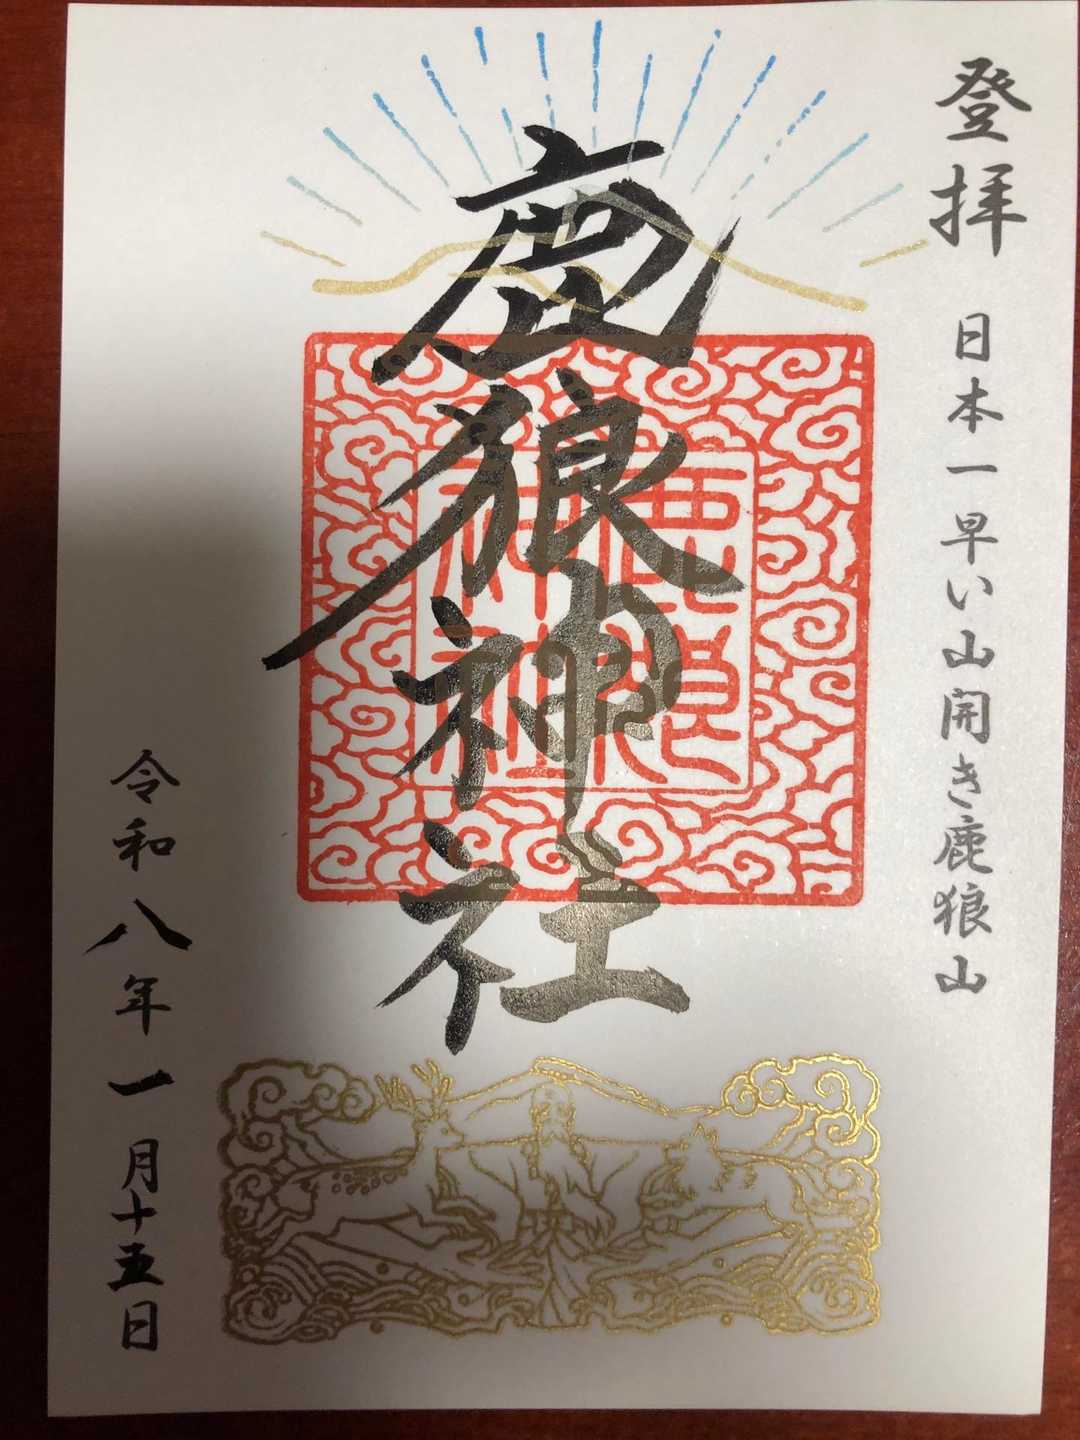 登拝 日本一早い山開き鹿狼山
鹿狼神社
令和八年一月十五日